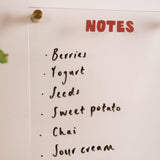 NOTES
· Berries
· Yogurt
· Seeds
· Sweet potato
· Chai
· Sour cream